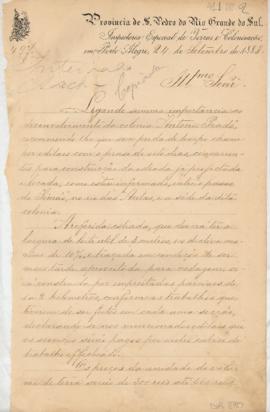 Provincia de S. Pedro do Rio Grande do Sul.
Inspectoria Especial de Terras e Colonisação,
em Porto Alegre, 24 de Setembro de 188
Illmo Senr
Ligando summa importancia ao
desenvolvimento da colonia Antonio Prado,
recommendo lhe que sem perda de tempo chame
por editaes com o praso de oito dias, concurrentes
para construcção da estrada ja projectada
e locada, como estou informado, entre o passo
do Simão, no rio das Antas, e a séde da dita
colonia.
A referida estrada, que deverá ter a
largura de de 5 metros, o declive ma-
ximo de 10% e traçada em condição de ser
mais tarde aproveitada para rodagem se-
rá construida por empreitadas parciaes de
1 a 2 kilometros, conforme os trabalhos que
tiverem de ser feitos em cada uma secção,
declarando se nos mencionados editaes que
os serviços serão pagos por unidade de
trabalho effectuado.
Os preços da unidade do volume
de terra serão de 300 reis até